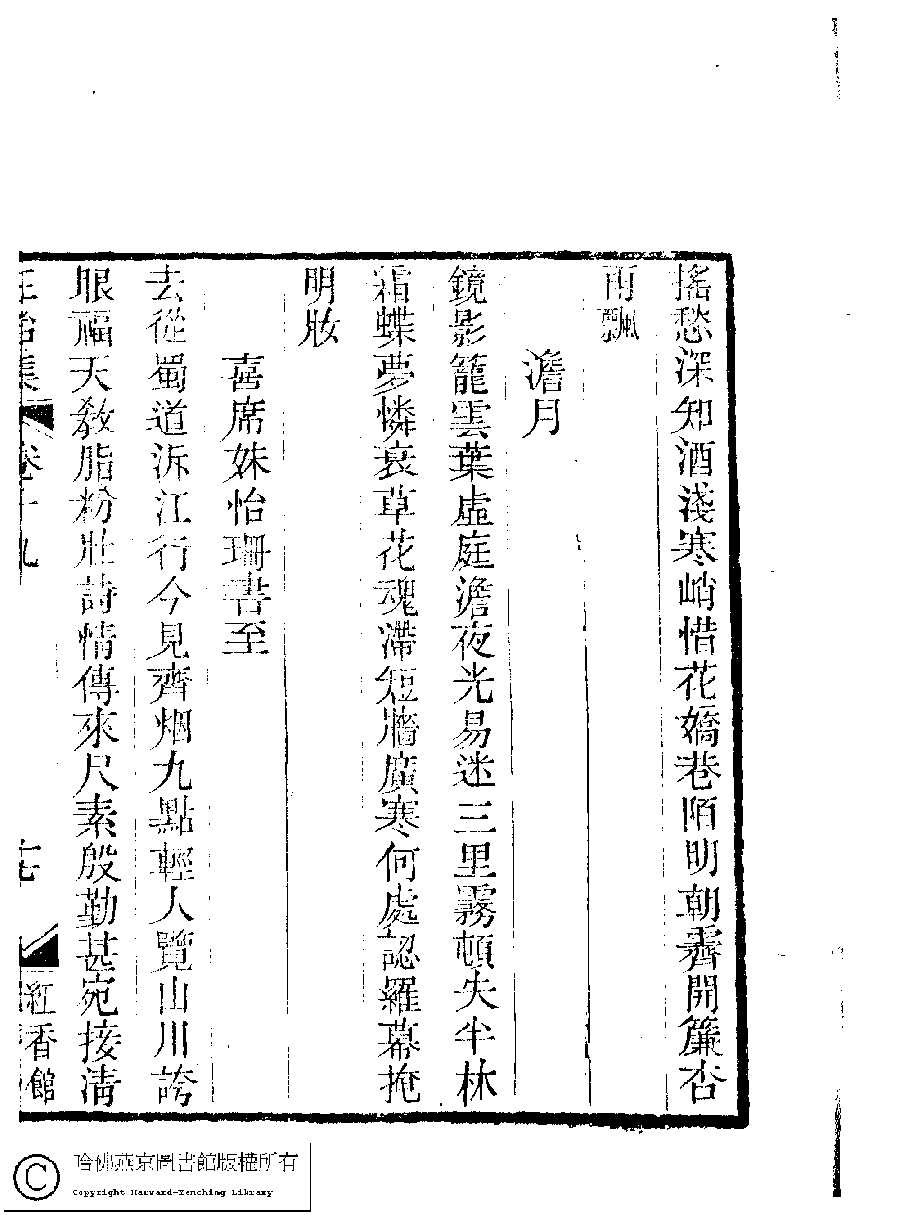 搖愁深知酒淺寒峭惜花嬌巷陌明朝霽開簾杏
雨飄
澹月
鏡影籠雲葉虛庭澹夜光易迷三里霧頓失半林
霜蝶夢憐衰草花魂滯短牆廣寒何處認羅幕掩
明妝
喜席姝怡珊書至
去從蜀道泝江行今見齊烟九點輕人覽山川誇
眼福天教脂粉壯詩情傳來尺素殷勤甚宛接淸
集 卷十九
十七
紅香館
哈佛燕京圖書館版權所有
Copyright Harvard-Yenching Library